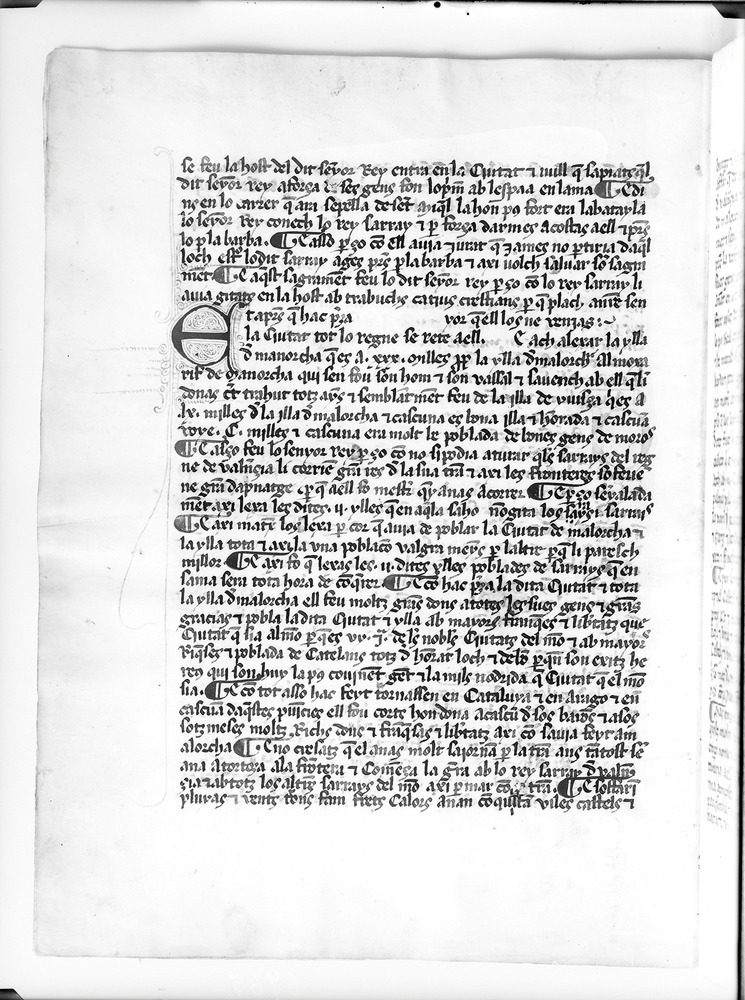 se feu la host del dit senyor Rey entra en la Ciutat ⁊ vull q̄ sapiats q̄l
dit senyor rey aforça d ses gens fon lo pm̄ ab lespaa en la ma ¶ E di
ns en lo carrer q̄ ara sepella de sēt Miq̄l la hon pus fort era la batayla
lo senyor Rey conech lo rey sarray ⁊ p força darmes acostas a ell ⁊ pres
lo p la barba. ¶ E asso p ço cō ell auia jurat q̄ james no partiria daq̄l
loch tro lo dit sarray ages pres p la barba ⁊ axi volch saluar so sagra
mēt ¶ E aq̄st sagramēt feu lo dit senyor rey p ço cō lo rey sarray li
auia gitats en la host ab trabuchs catius crestians p q̄ plach a nr̄e sen
yor q̄ ell los ne venjas :~
E tapres q̄ hac p̄sa
la Ciutat tot lo regne se rete a ell. E ach a lexar la ylla
d manorcha q̄ es a .xxx. milles pp la ylla d malorcħ Almoxa
rif de Manorcha qui sen feu son hom ⁊ son vassall ⁊ sauench ab ell q̄ li
donas Cert trahut totz ays ⁊ semblātmēt feu de la illa de yuissa q̄ es a
lx. milles d la illa d malorcha ⁊ cascuna es bona illa ⁊ honrada ⁊ cascūa
.C. milles ⁊ cascuna era molt be poblada de bones gens de moros
¶ E asso feu lo senyor rey p ço cō no si podia aturar q̄ls sarrays del reg
ne de valencia li corriē grā res d la sua trā ⁊ axi les fronteres sofferiē
ne grā dapnatge p q̄ a ell fo mestr̄ q̄y anas acorrer ¶ E p ço senyalada
mēt axi lexa les dites .ij. ylles q̄ en aq̄la saho no gita los sarrays
¶ E axi mateix los lexa p cor q̄ auia de poblar la Ciutat de malorcha ⁊
la ylla tota ⁊ axi la vna poblaco valgra meys p laltre p q̄ li paresch
millor ¶ E axi fo q̄ lexa les .ij. dites ylles poblades de sarrays q̄ en
sa ma sera tota hora de cōq̄rer ¶ E cō hac p̄sa la dita Ciutat ⁊ tota
la ylla d malorcha ell feu moltz grās dons a totes les sues gens ⁊ grās
gracias ⁊ pobla la dita Ciutat ⁊ ylla ab mayors franq̄ses ⁊ libtatz que
Ciutat q̄ sia al mo p q̄ es vy de les nobles Ciutats del mo ⁊ ab mayors
Riq̄ses ⁊ poblada de Catelans totz d honrat loch ⁊ de lo p q̄n son exitz he
reus qui son huy la pus couinēt gēt ⁊ la mils nodrida q̄ Ciutat q̄ el mo
sia. ¶ E cō tot asso hac feyt tornassen en Cataluya ⁊ en Arago ⁊ en
cascūa daq̄stes pvicies ell feu corts hon dona a cascū d sos baros ⁊ a sos
sotzmeses moltz Richs dons ⁊ frāq̄sas ⁊ libtatz axi cō sauia feyt a m
alorcha ¶ E no cresatz q̄ el anas molt sajornā p la trā ans tātost se
ana a tortosa a la frōtera ⁊ Comēsa la grā ab lo rey sarray d valen
sia ⁊ ab totz los altr̄s sarrays del mo axi p mar cō trā. ¶ E soffari
pluyas ⁊ vents trons fam fretz Calors anan cōquistā viles castels ⁊